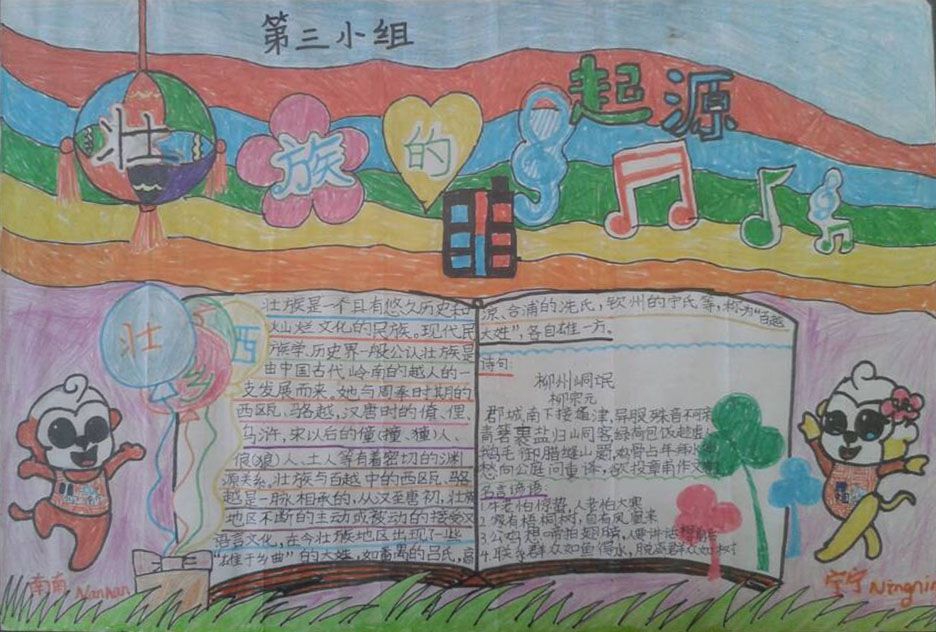 第三小组
壮族的起源
壮
西
壮族是一个具有悠久历史和
灿烂文化的民族。现代民
族学、历史界一般公认壮族是
由中国古代岭南的越人的一
支发展而来。她与周秦时期的
西瓯、骆越，汉唐时的僮、俚、
乌浒，宋以后的僮(撞、獞)人、
俍(狼)人、土人等有着密切的渊
源关系。壮族与百越中的西瓯、骆
越是一脉相承的，从汉至唐初，壮族
地区不断的主动或被动的接受汉
语言文化，在今壮族地区出现了一些
"雄于乡曲"的大姓，如番禺的吕氏，高
凉、合浦的冼氏，钦州的宁氏等，称为"百越
大姓"，各自雄一方。
诗句:
柳州峒氓
柳宗元
郡城南下接通津，异服殊音不可
青箬裹盐归峒客，绿荷包饭趁虚
鹅毛御腊缝山罽，鸡骨占年拜水
愁向公庭问重译，欲投章甫作文
名言谚语:
1.牛老怕惊蛰，人老怕大寒
2.家有梧桐树，自有凤凰来
3.公鸡想啼拍翅膀，人要讲话想前
4.联系群众如鱼得水，脱离群众如树
南南 Nannan
宁宁 Ningnin